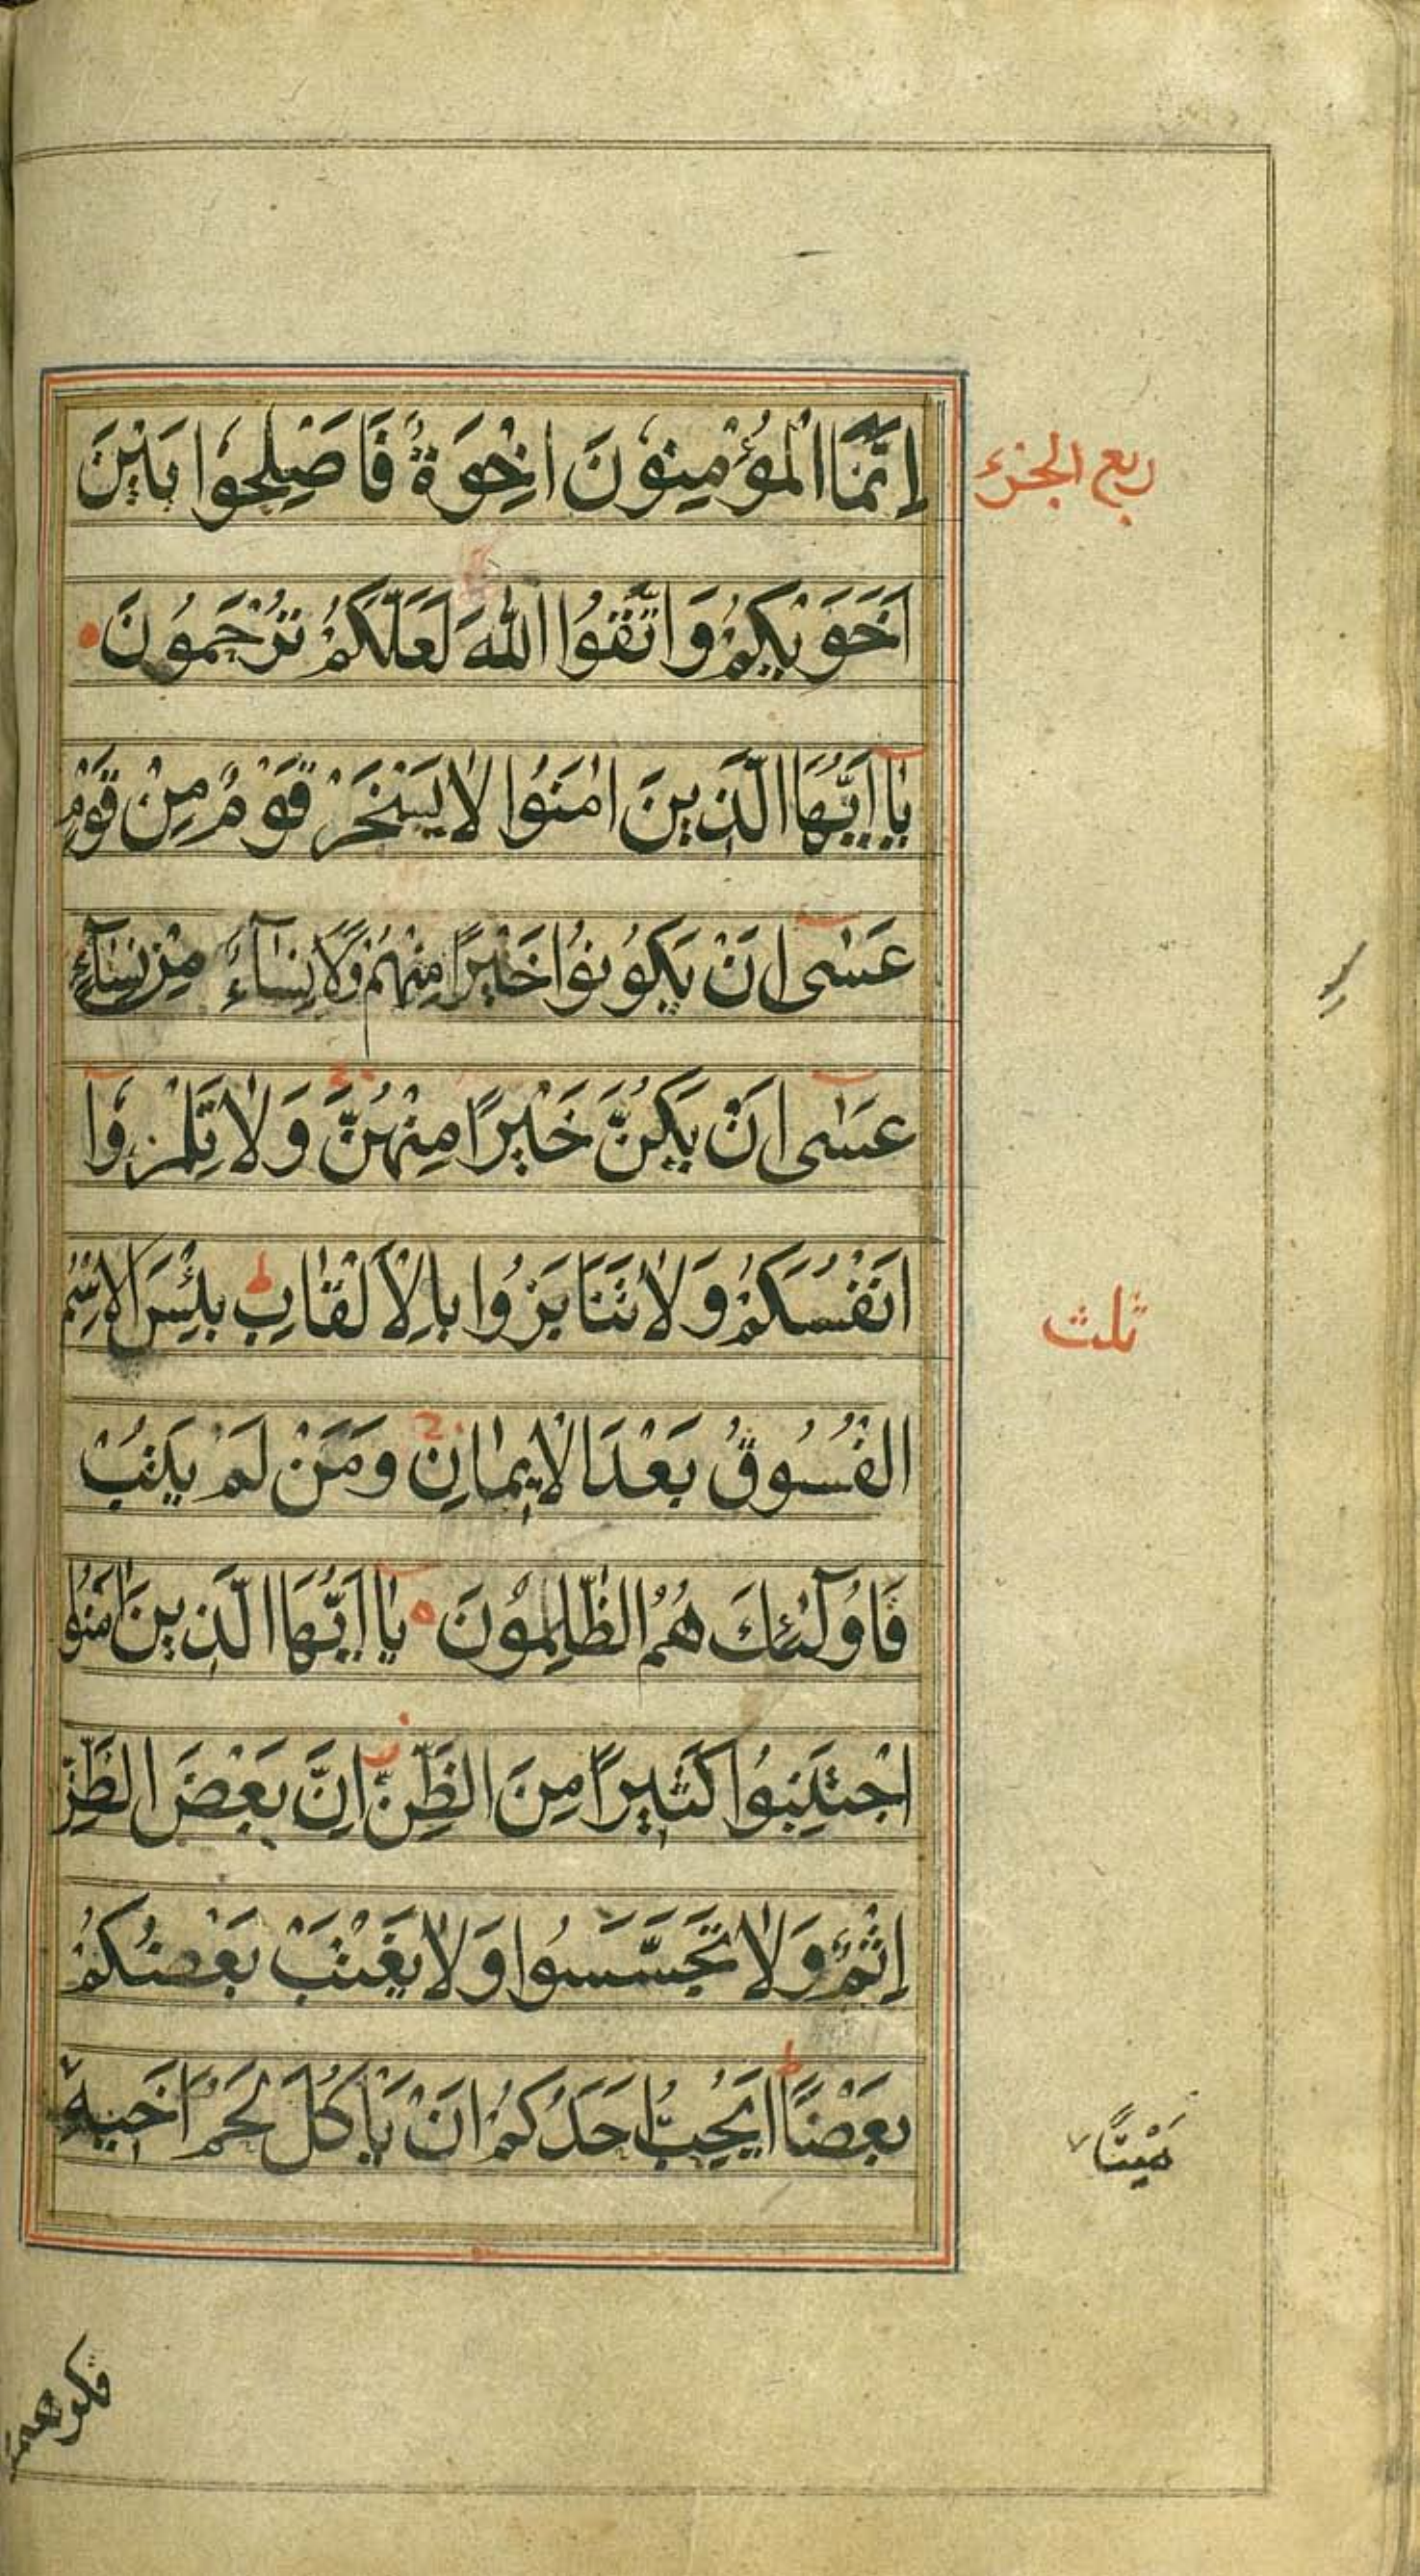 إِنَّمَا الْمُؤْمِنُونَ اِخْوَةٌ فَاَصْلِحُوا بَيْنَ
ربع الجزء
اَخَوَيْكُمْ وَاتَّقُوا اللّٰهَ لَعَلَّكُمْ تُرْحَمُونَ
يَٓا اَيُّهَا الَّذِينَ اٰمَنُوا لَا يَسْخَرْ قَوْمٌ مِنْ قَوْمٍ
عَسٰٓى اَنْ يَكُونُوا خَيْرًا مِنْهُمْ وَلَا نِسَٓاءٌ مِنْ نِسَٓاءٍ
عَسٰٓى اَنْ يَكُنَّ خَيْرًا مِنْهُنَّ ج وَلَا تَلْمِزُوٓا
اَنْفُسَكُمْ وَلَا تَنَابَزُوا بِالْاَلْقَابِ ط بِئْسَ الْاِسْمُ
ثلث
الْفُسُوقُ بَعْدَ الْاِيمَانِ ج وَمَنْ لَمْ يَتُبْ
فَاُولٰٓئِكَ هُمُ الظَّالِمُونَ ه يَٓا اَيُّهَا الَّذِينَ اٰمَنُوا
اجْتَنِبُوا كَثِيرًا مِنَ الظَّنِّ ز اِنَّ بَعْضَ الظَّنِّ
إِثْمٌ وَلَا تَجَسَّسُوا وَلَا يَغْتَبْ بَعْضُكُمْ
بَعْضًا ط اَيُحِبُّ اَحَدُكُمْ اَنْ يَأْكُلَ لَحْمَ اَخِيهِ
مَيْتًا
فكرهتمو